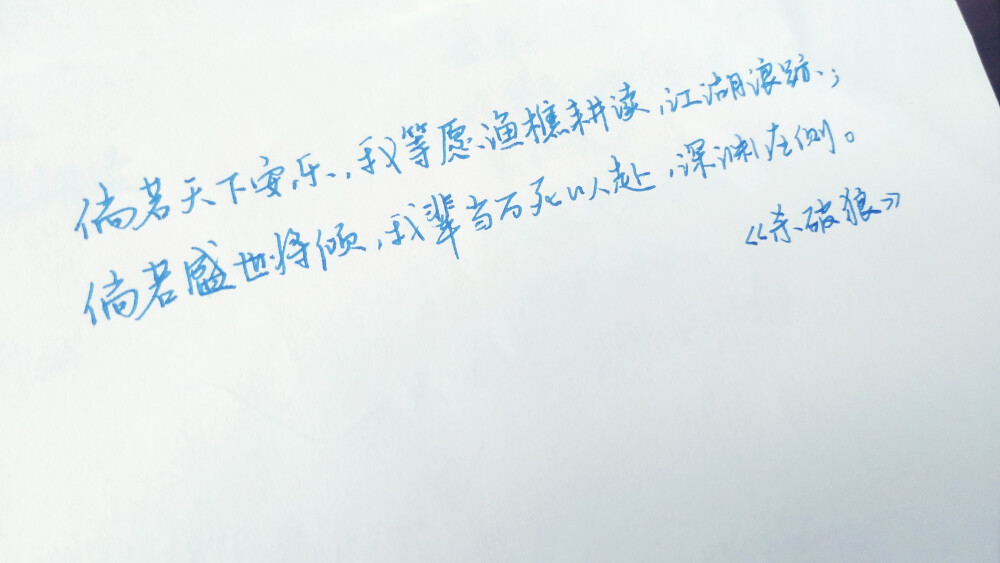 倘若天下安乐，我等愿渔樵耕读，江湖浪迹；
倘若盛世将倾，我辈当万死以赴，深渊在侧。
《杀破狼》